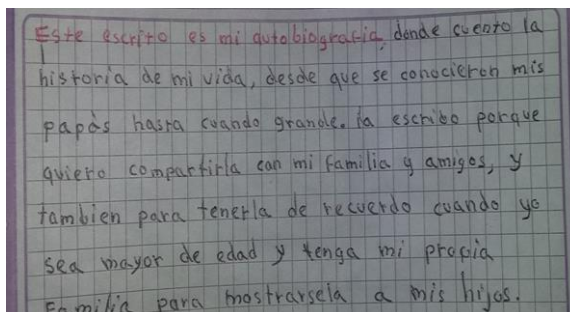 Este escrito es mi autobiografia, donde cuento la
historia de mi vida, desde que se conocieron mis
papás hasta cuando grande. la escribo porque
quiero compartirla con mi familia y amigos, y
tambien para tenerla de recuerdo cuando yo
sea mayor de edad y tenga mi propia
Familia para mostrarsela a mis hijos.